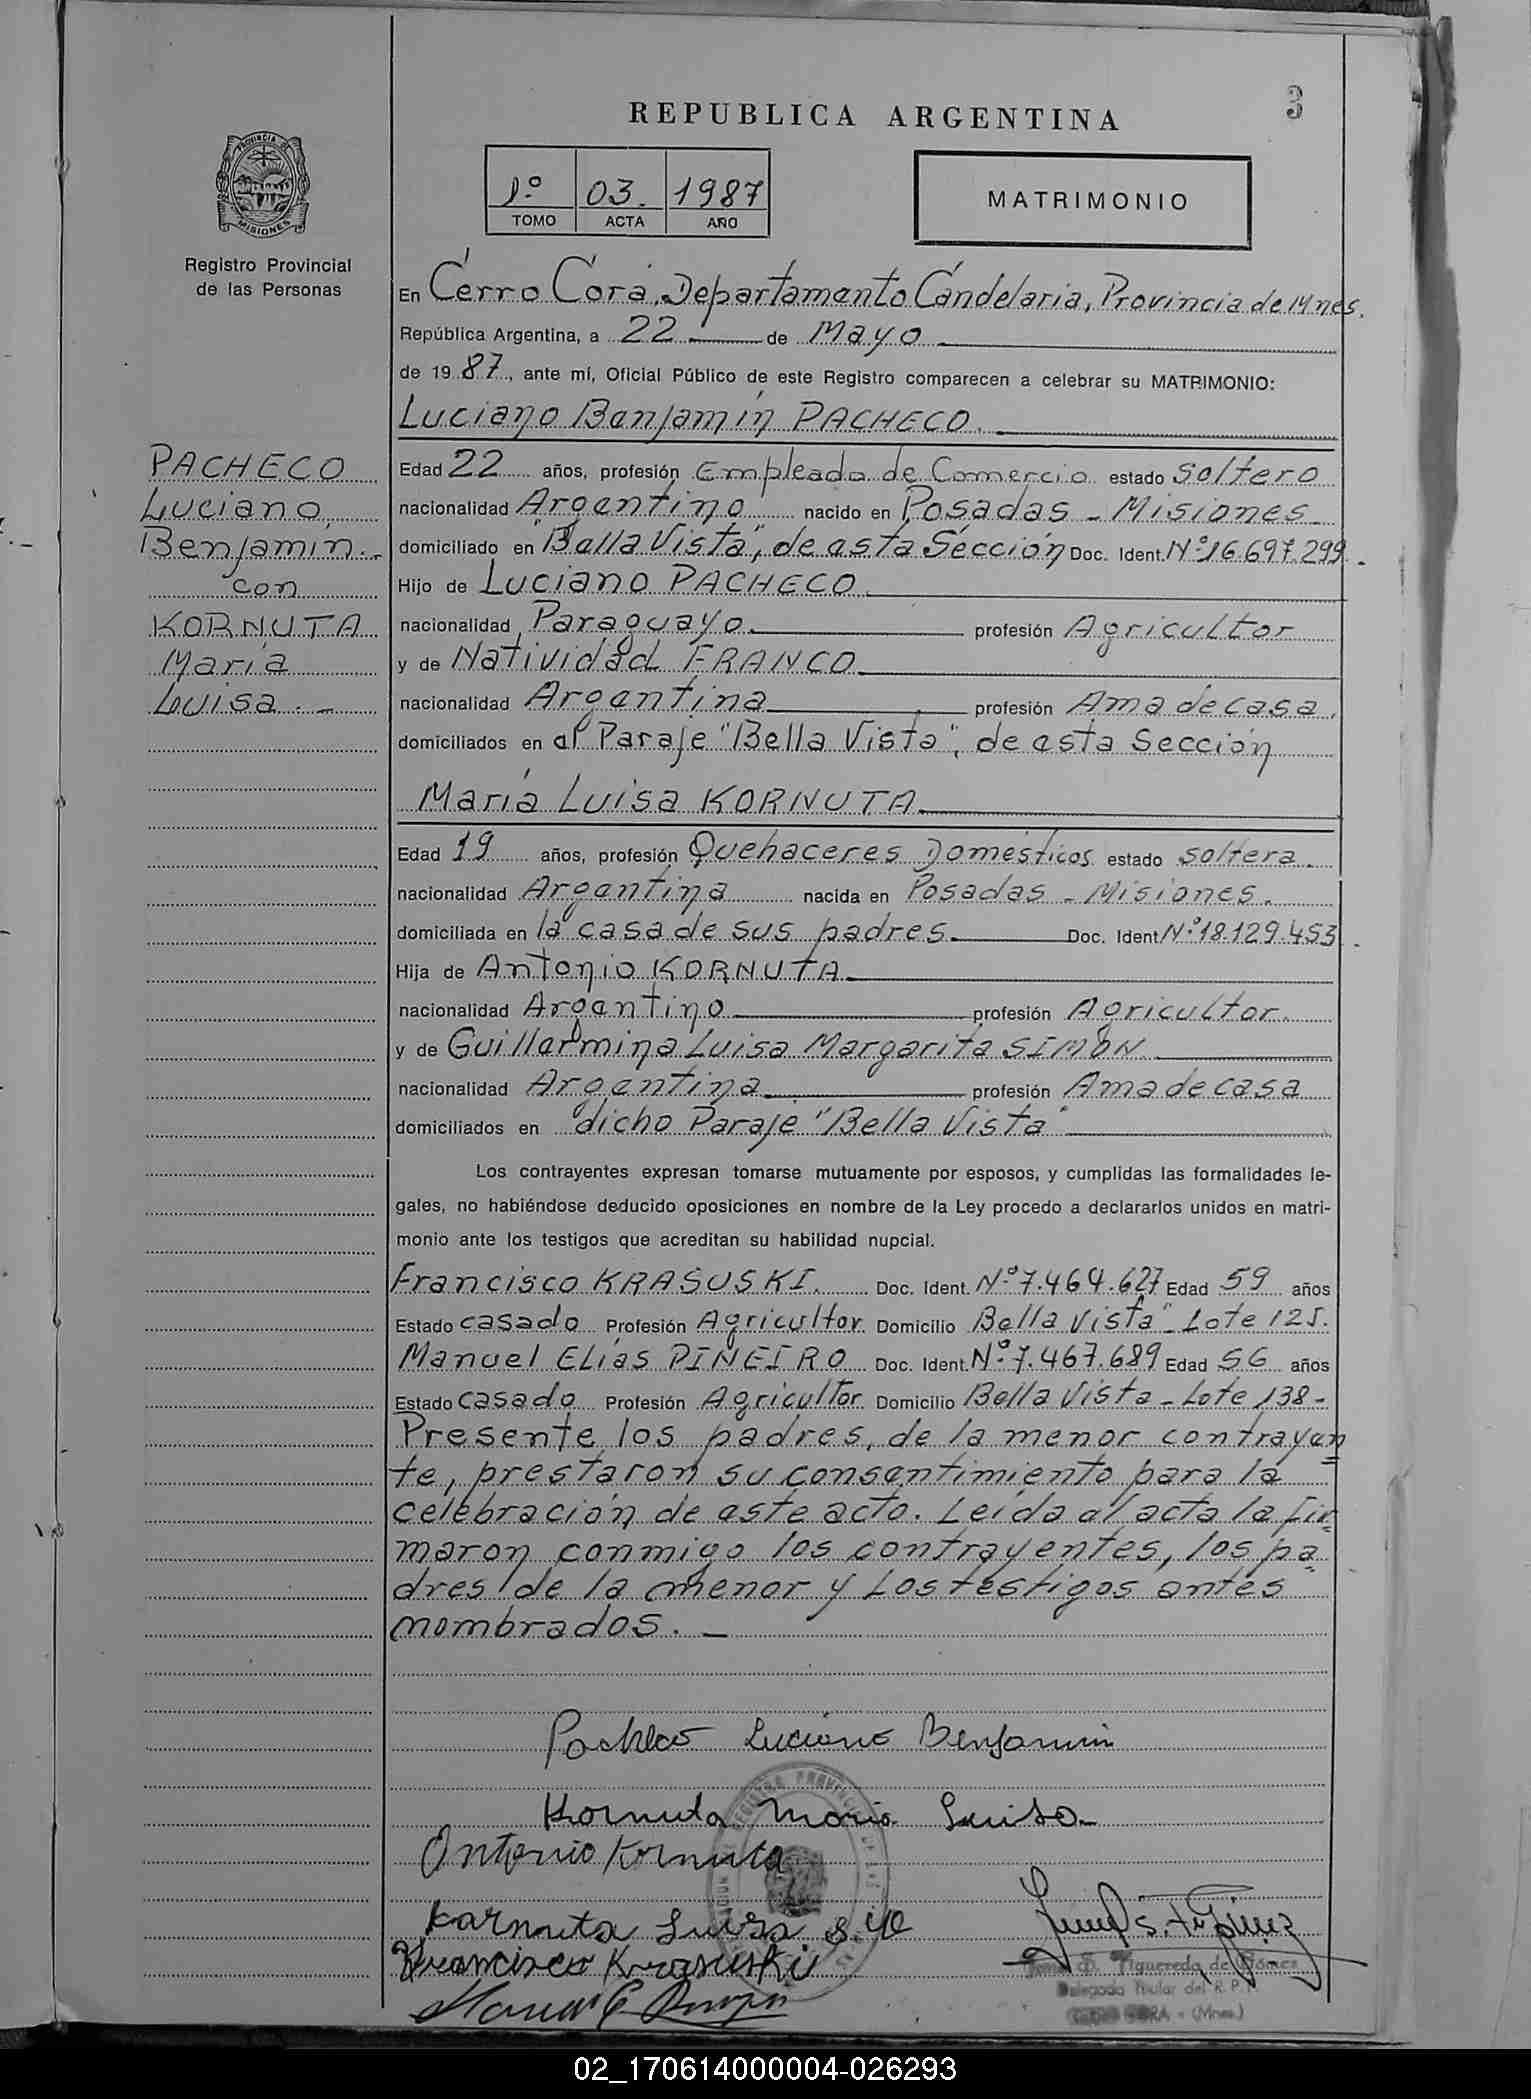 REPUBLICA ARGENTINA
3
PROVINCIA DE
MISIONES
Registro Provincial
de las Personas
1º 03. 1987
TOMO ACTA AÑO
MATRIMONIO
En Cerro Corá, Departamento Candelaria, Provincia de Mnes.
República Argentina, a 22 de Mayo
de 1987, ante mí, Oficial Público de este Registro comparecen a celebrar su MATRIMONIO:
Luciano Benjamín PACHECO.
PACHECO
Luciano,
Benjamín.-
con
KORNUTA
María
Luisa.-
Edad 22 años, profesión Empleado de Comercio estado soltero
nacionalidad Argentino nacido en Posadas - Misiones
domiciliado en "Bella Vista", de esta Sección Doc. Ident. Nº 16.697.299.
Hijo de Luciano PACHECO
nacionalidad Paraguayo profesión Agricultor
y de Natividad FRANCO
nacionalidad Argentina profesión Ama de casa.
domiciliados en el Paraje "Bella Vista", de esta Sección
María Luisa KORNUTA
Edad 19 años, profesión Quehaceres Domésticos estado soltera.
nacionalidad Argentina nacida en Posadas - Misiones.
domiciliada en la casa de sus padres. Doc. Ident Nº 18.129.453.
Hija de Antonio KORNUTA
nacionalidad Argentino profesión Agricultor.
y de Guillermina Luisa Margarita SIMON
nacionalidad Argentina profesión Ama de casa
domiciliados en dicho Paraje "Bella Vista"
Los contrayentes expresan tomarse mutuamente por esposos, y cumplidas las formalidades le-
gales, no habiéndose deducido oposiciones en nombre de la Ley procedo a declararlos unidos en matri-
monio ante los testigos que acreditan su habilidad nupcial.
Francisco KRASUSKI. Doc. Ident. Nº 7.464.627 Edad 59 años
Estado casado Profesión Agricultor Domicilio Bella Vista" - Lote 125.
Manuel Elías PIÑEIRO Doc. Ident. Nº 7.467.689 Edad 56 años
Estado casado Profesión Agricultor Domicilio Bella Vista - Lote 138-
Presente los padres, de la menor contrayen=
te, prestaron su consentimiento para la
celebración de este acto. Leída al acta la fir=
maron conmigo los contrayentes, los pa=
dres de la menor y Los testigos antes
nombrados. -
Pacheco Luciano Benjamin
Kornuta Maria Luisa
Antonio Kornuta
Kornuta Luisa S. de
Francisco Krasuski
D. Figueredo de Gómez
Delegada Titular del R. P. P.
CERRO CORA - (Mnes.)
02_170614000004-026293